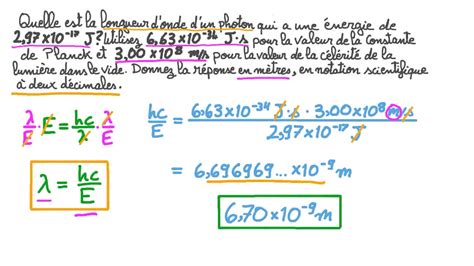 Quelle est la longueur d'onde d'un photon qui a une énergie de
2,97×10⁻¹⁷ J? Utilisez 6,63×10⁻³⁴ J·s pour la valeur de la constante
de Planck et 3,00×10⁸ m/s pour la valeur de la célérité de la
lumière dans le vide. Donnez la réponse en mètres, en notation scientifique
à deux décimales.
λ/E · E = hc/λ · λ/E
hc/E = 6,63×10⁻³⁴ J·s · 3,00×10⁸ m/s / 2,97×10⁻¹⁷ J
λ = hc/E
= 6,696969... ×10⁻⁹ m
6,70×10⁻⁹ m